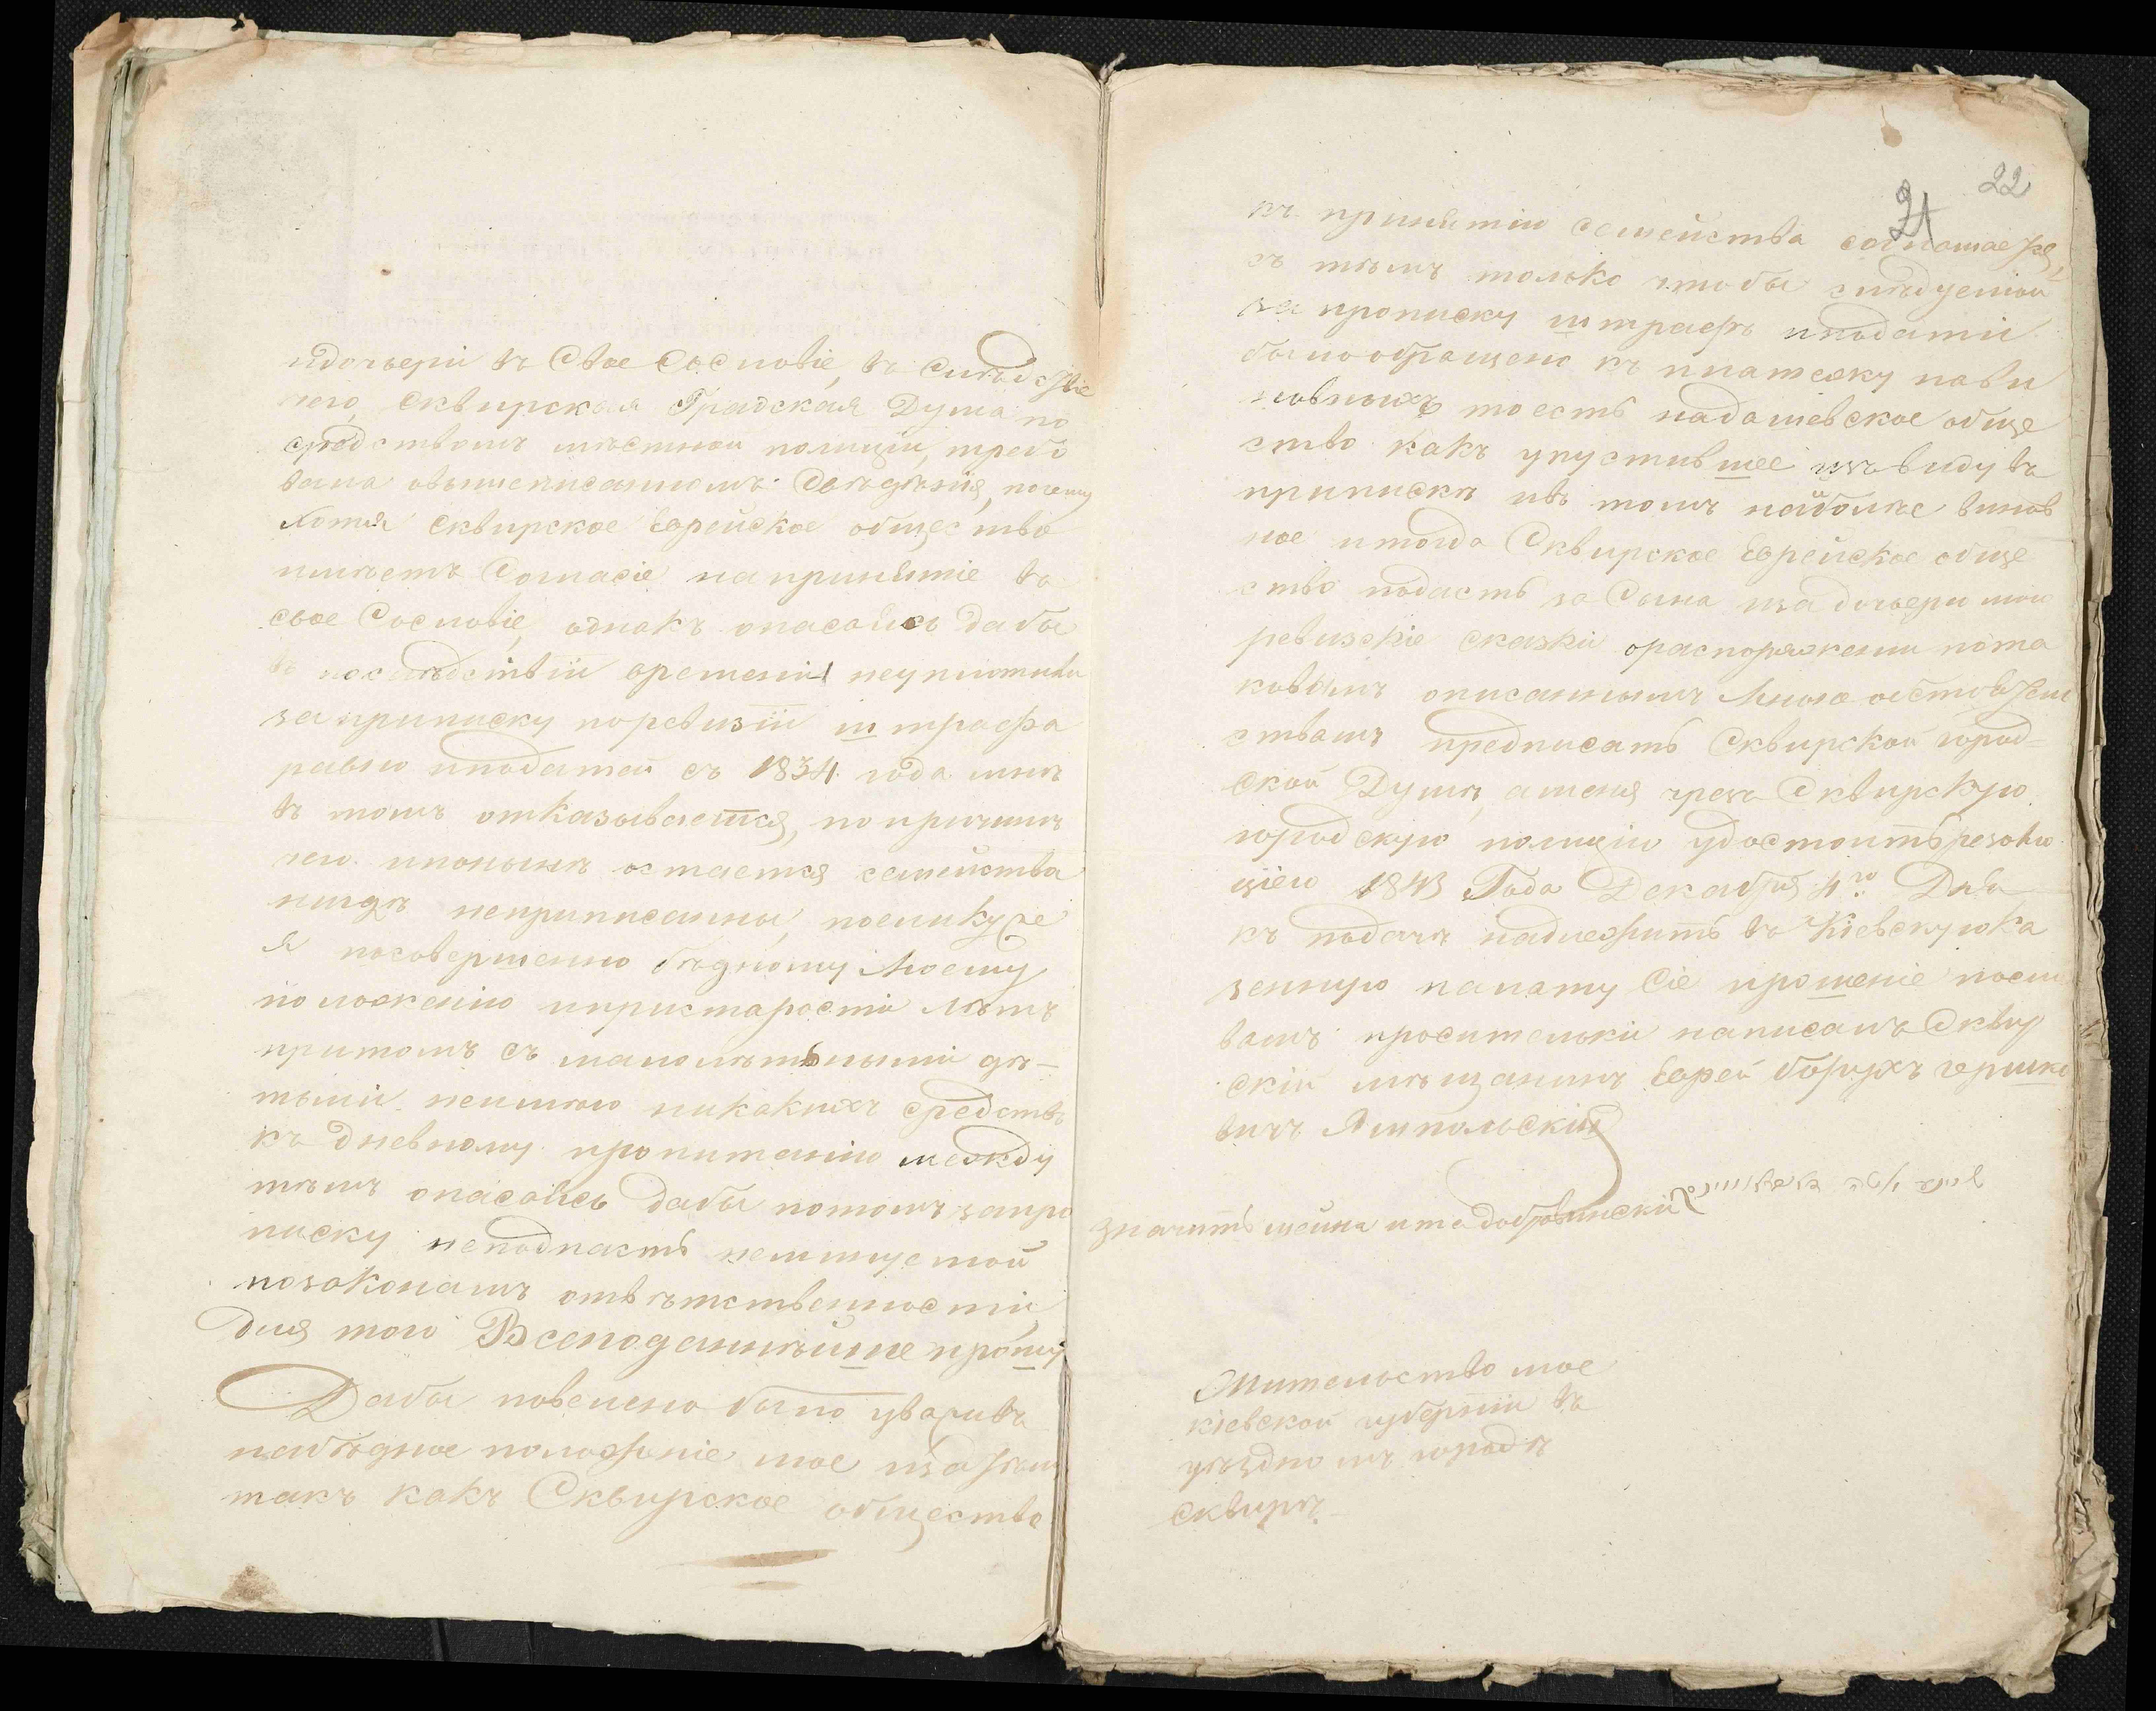 идочьери въ Свое Сословіе, въ Следствіе
чего, Сквирская Градская Дума по
средствомъ местной полиціи, требо
вала овышеписанномъ Сведенія, почему
Хотя Сквирское Еврейское общество
имеетъ Согласіе напринятіе въ
свое Сословіе, однакъ опасаясь дабы
въ последствіи времени неуплотили
заприписку поревизіи штрафа
равно иподатей съ 1834 года мне
въ томъ отказывается, по причине
чего ипоныне остается семейства
нигде неприписанны, поелику же
Я посовершенно бедному Моему
положенію ипристарости летъ
притомъ съ малолетными де-
тьми неимею никакихъ средствъ
къ дневному пропитанію между
темъ опасаясь дабы потомъ запро
писку неподпасть неминуемой
позаконамъ ответственности,
для того Всеподданнейше прошу
Дабы повелено было уваживъ
набедное положеніе мое изатемъ
такъ какъ Сквирское общество
22
21
къ принятію семейства соглошается,
съ темъ только чтобы следуемой
за прописку штрафъ иподати
было обращено къ платежу нави
новныхъ тоесть кадашевское обще
ство какъ упустившее изъ виду въ
приписке ивъ томъ найболее винов
ное итогда Сквирское Еврейское обще
ство подастъ за Сына иза дочьери мои
ревизскіе сказки ораспоряжении пота
ковымъ описаннымъ Мною обстоятель
ствамъ предписать Сквирской город=
ской Думе, аменя чрезъ Сквирскую
городскую полицію удостоить резолю
ціею 1843 Года Декабря 4го Дня
къ подаче надлежитъ въ Кіевскую ка
зенную палату Сіе прошеніе посло
вамъ просительки написалъ Сквир
скій мещанинъ Еврей борухъ гершко
вичъ Ямпольскій
значитъ шейна ита добровинскій
Жительство мое
кіевской губерніи въ
уездномъ городе
Сквире.-